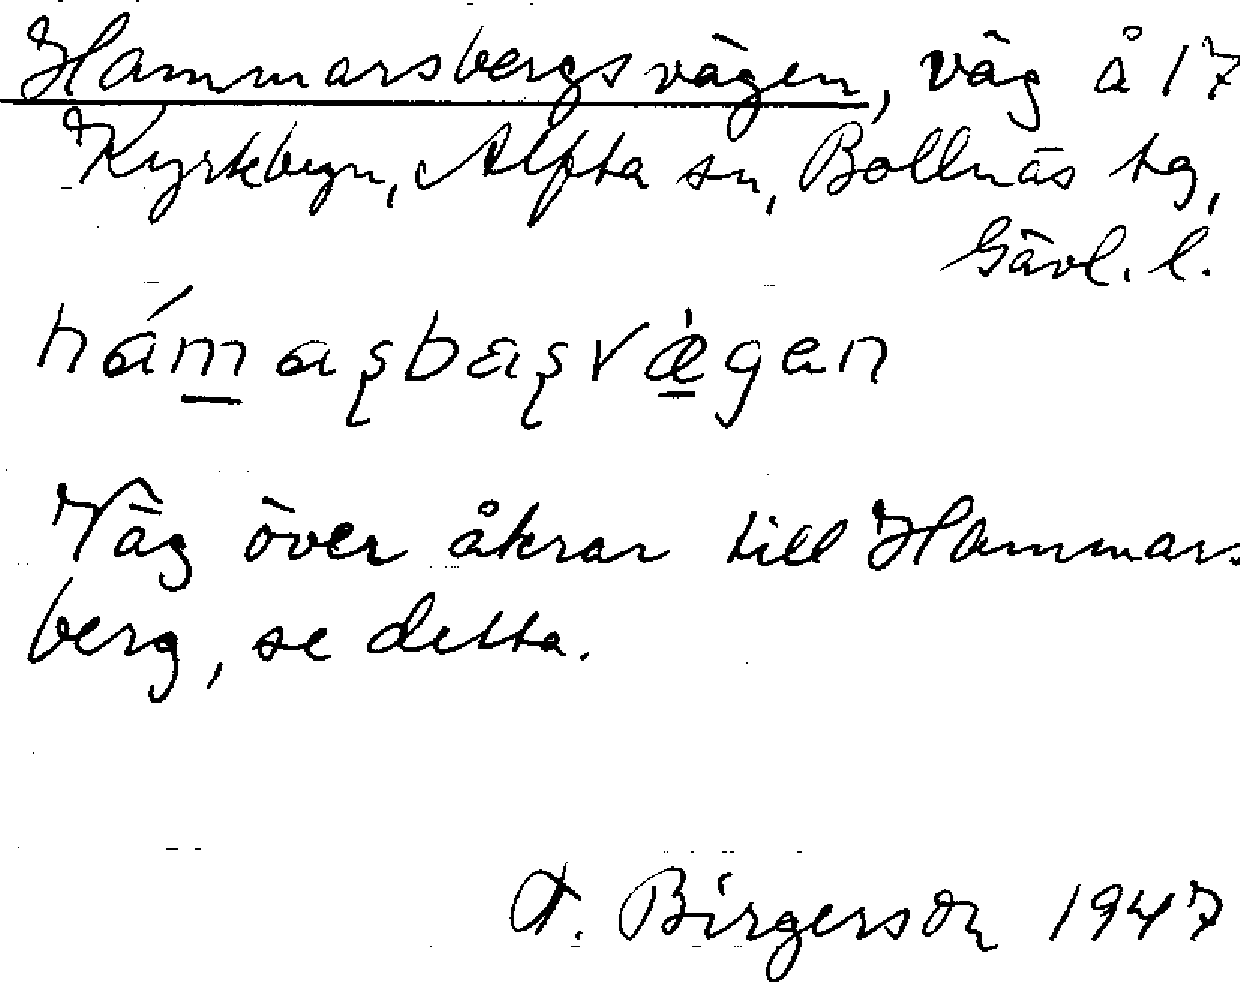 Hammarsbergsvägen, väg å 17
Kyrkbyn, Alfta sn, Bollnäs tg,
Gävl. l.
hámaʂbaʂvæ̀gan
Väg över åkrar till Hammars
berg, se detta.
A. Birgerson 1947